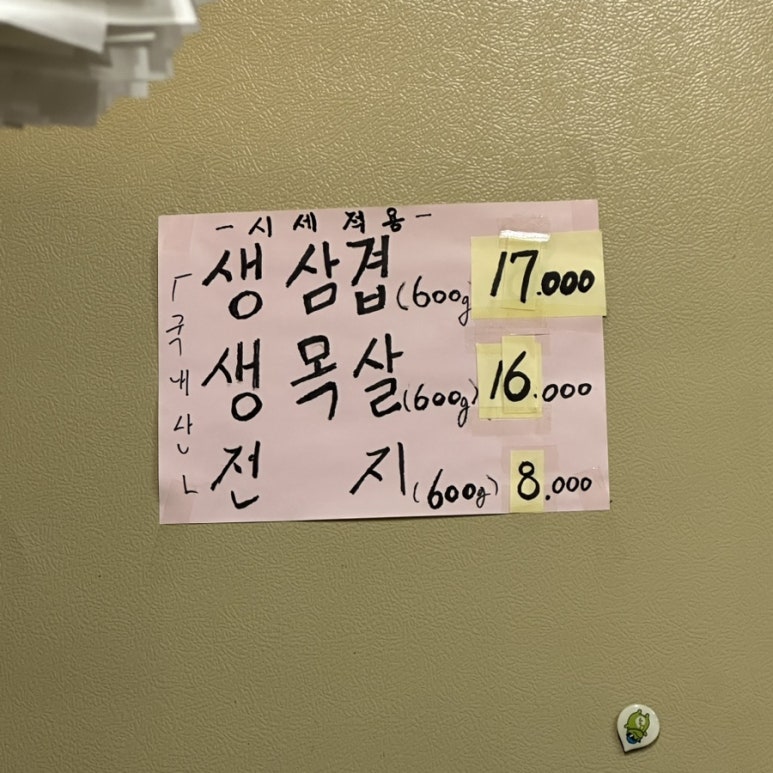 - 시세적용 -
생삼겹(600g) 17.000
생목살(600g) 16.000
전지(600g) 8.000
「국내산」